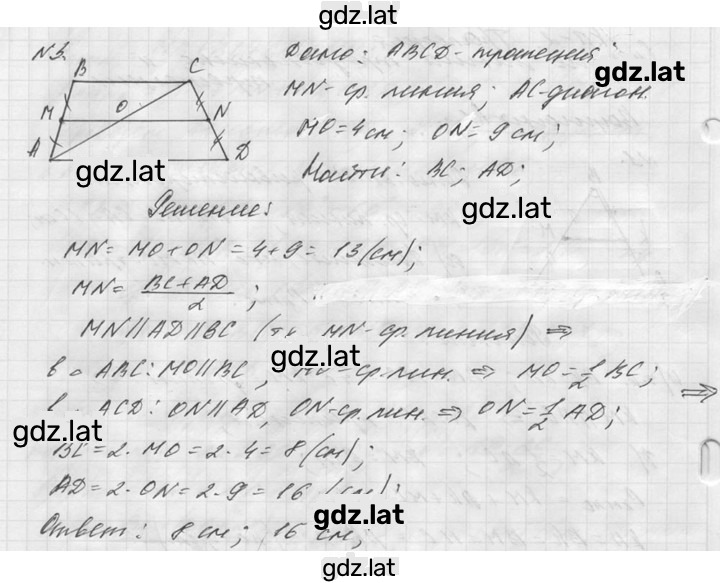 gdz.lat
N3.
B C
M O N
A D
gdz.lat
Дано: ABCD - трапеция
gdz.lat
MN - ср. линия; AC - диагон.
MO = 4 см; ON = 9 см;
Найти: BC; AD;
gdz.lat
Решение:
MN = MO + ON = 4 + 9 = 13 (см);
MN = BC + AD / 2 ;
MN || AD || BC (т.к. MN - ср. линия) ⇒
gdz.lat
в ABC: MO || BC, - ср. лин. ⇒ MO = 1/2 BC;
в ACD: ON || AD, ON - ср. лин. ⇒ ON = 1/2 AD; ⇒
gdz.lat
BC = 2 · MO = 2 · 4 = 8 (см);
AD = 2 · ON = 2 · 9 = 16 (см);
gdz.lat
Ответ: 8 см; 16 см;
gdz.lat